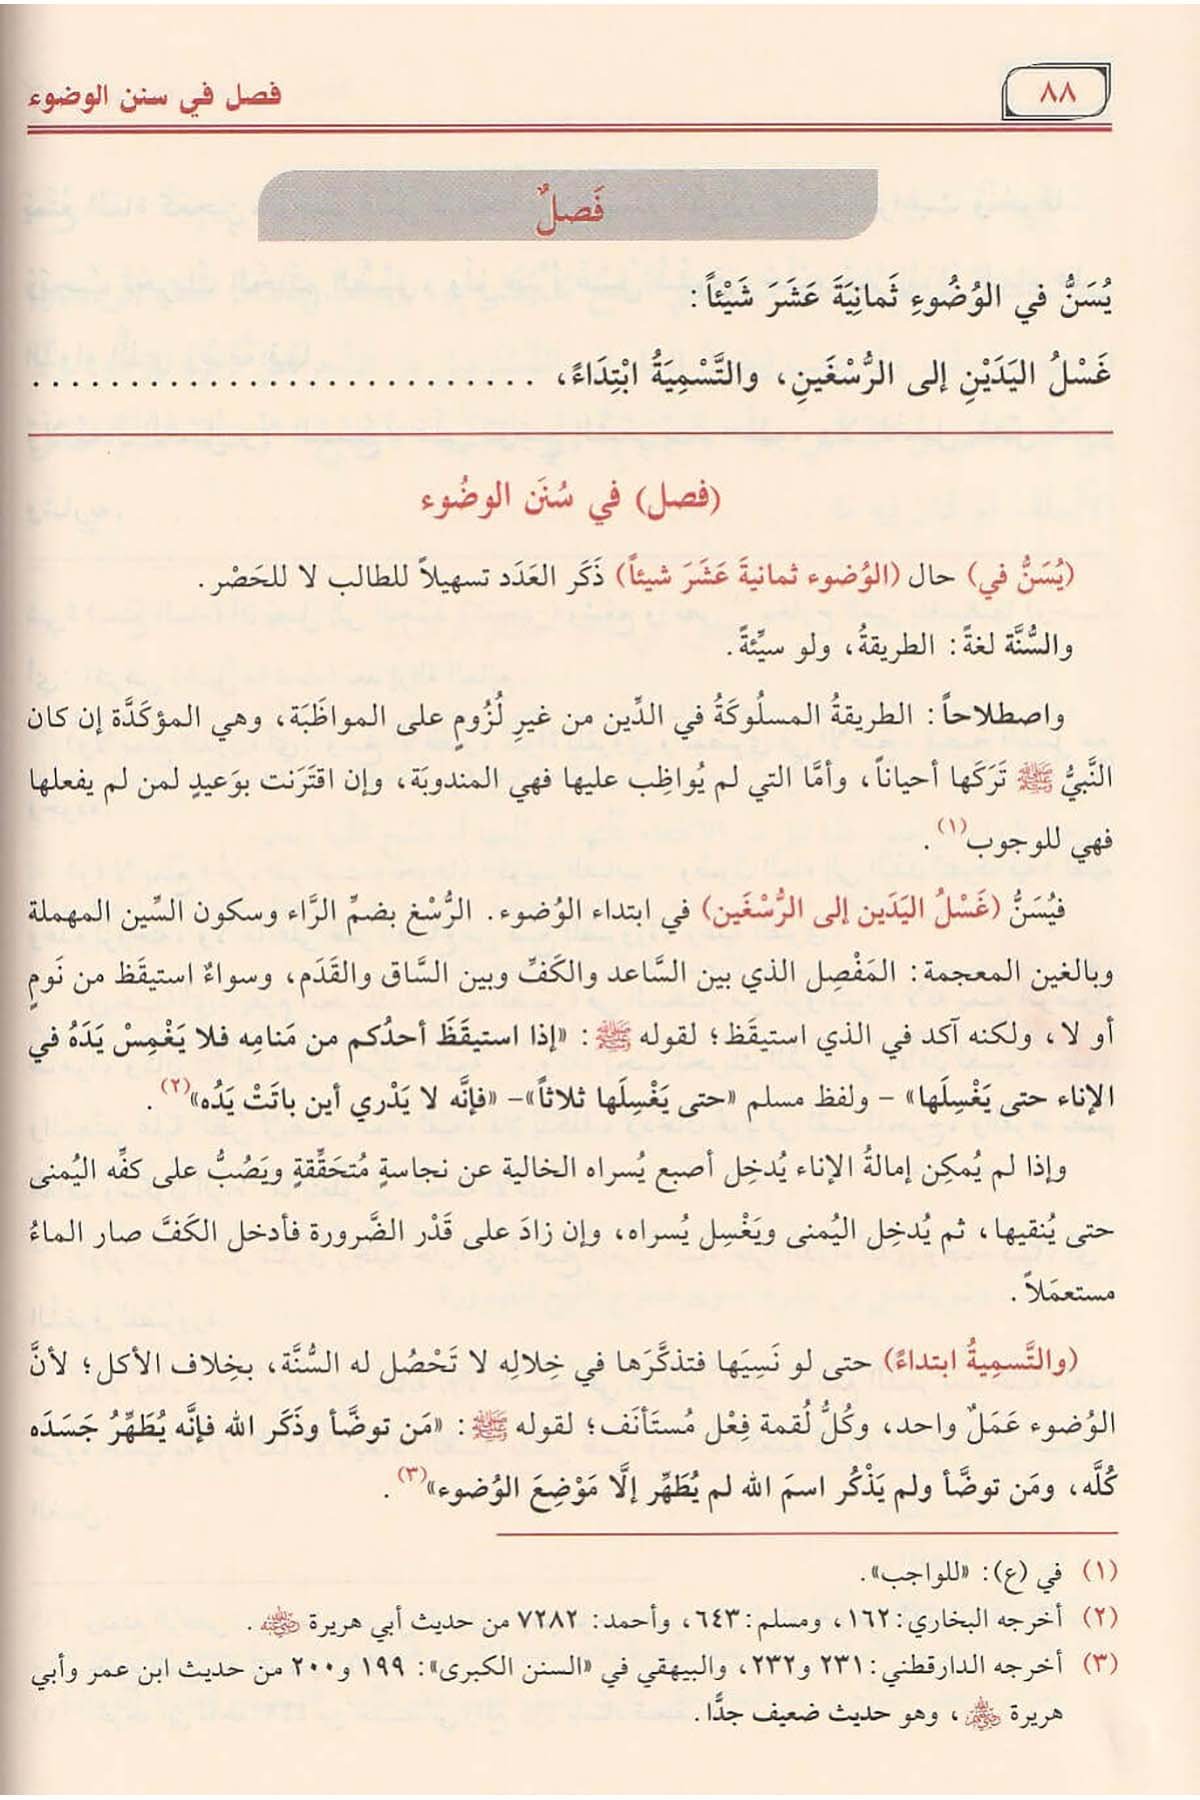 ٨٨
فصل في سنن الوضوء
فَصلٌ
يُسَنُّ في الوُضُوءِ ثَمانِيَةَ عَشَرَ شَيْئاً:
غَسْلُ اليَدَيْنِ إلى الرُّسْغَينِ، والتَّسْمِيَةُ ابْتِدَاءً، . . . . . . . . . . . . . . . . . . . . . . . . .
(فصل) في سُنَن الوضُوء
(يُسَنُّ في) حال (الوُضوء ثمانيةَ عَشَرَ شيئاً) ذَكَر العَدَد تسهيلاً للطالب لا للحَصْر.
والسُّنَّة لغةً: الطريقةُ، ولو سيِّئةً.
واصطلاحاً: الطريقةُ المسلُوكَةُ في الدِّين من غيرِ لُزُومٍ على المواظَبَة، وهي المؤكَدَّة إن كان
النَّبيُّ ﷺ تَرَكَها أحياناً، وأمَّا التي لم يُواظِب عليها فهي المندوبَة، وإن اقتَرَنت بوَعيدٍ لمن لم يفعلها
فهي للوجوب(١).
فيُسَنُّ (غَسْلُ اليَدَين إلى الرُّسْغَين) في ابتداء الوُضوء. الرُّسْغ بضمِّ الرَّاء وسكون السِّين المهملة
وبالغين المعجمة: المَفْصِل الذي بين السَّاعد والكَفِّ وبين السَّاق والقَدَم، وسواءٌ استيقَظ من نَومٍ
أو لا، ولكنه آكد في الذي استيقَظ؛ لقوله ﷺ: «إذا استيقَظَ أحدُكم من مَنامِه فلا يَغْمِسْ يَدَهُ في
الإناء حتى يَغْسِلَها» - ولفظ مسلم «حتى يَغْسِلَها ثلاثاً»- «فإنَّه لا يَدْري أين باتَتْ يَدُه»(٢).
وإذا لم يُمكِن إمالةُ الإناء يُدخِل أصبع يُسراه الخالية عن نجاسةٍ مُتحَقِّقةٍ ويَصُبُّ على كفِّه اليُمنى
حتى يُنقيها، ثم يُدخِل اليُمنى ويَغْسِل يُسراه، وإن زادَ على قَدْر الضَّرورة فأدخل الكَفَّ صار الماءُ
مستعمَلاً.
(والتَّسمِيةُ ابتداءً) حتى لو نَسِيَها فتذكَّرَها في خِلالِه لا تَحْصُل له السُّنَّة، بخِلاف الأكل؛ لأنَّ
الوُضوء عَمَلٌ واحد، وكُلُّ لُقمة فِعْل مُستَأنَف؛ لقوله ﷺ: «مَن توضَّأ وذَكَر الله فإنَّه يُطَهِّرُ جَسَدَه
كُلَّه، ومَن توضَّأ ولم يَذْكُر اسمَ الله لم يُطَهِّر إلَّا مَوْضِعَ الوُضوء»(٣).
(١) في (ع): «للواجب».
(٢) أخرجه البخاري: ١٦٢، ومسلم: ٦٤٣، وأحمد: ٧٢٨٢ من حديث أبي هريرة رضي الله عنه.
(٣) أخرجه الدارقطني: ٢٣١ و٢٣٢، والبيهقي في «السنن الكبرى»: ١٩٩ و٢٠٠ من حديث ابن عمر وأبي
هريرة رضي الله عنهم، وهو حديث ضعيف جدًّا.